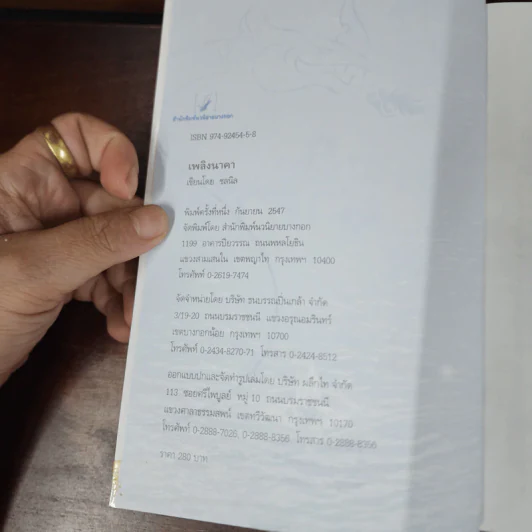 สำนักพิมพ์นวนิยายบางกอก
ISBN 974-92454-5-8
เพลิงนาคา
เขียนโดย ชลนิล
พิมพ์ครั้งที่หนึ่ง กันยายน 2547
จัดพิมพ์โดย สำนักพิมพ์นวนิยายบางกอก
1199 อาคารปิยวรรณ ถนนพหลโยธิน
แขวงสามเสนใน เขตพญาไท กรุงเทพฯ 10400
โทรศัพท์ 0-2619-7474
จัดจำหน่ายโดย บริษัท ธนบรรณปิ่นเกล้า จำกัด
3/19-20 ถนนบรมราชชนนี แขวงอรุณอมรินทร์
เขตบางกอกน้อย กรุงเทพฯ 10700
โทรศัพท์ 0-2434-8270-71 โทรสาร 0-2424-8512
ออกแบบปกและจัดทำรูปเล่มโดย บริษัท ผลึกไท จำกัด
113 ซอยศรีไพบูลย์ หมู่ 10 ถนนบรมราชชนนี
แขวงศาลาธรรมสพน์ เขตทวีวัฒนา กรุงเทพฯ 10170
โทรศัพท์ 0-2888-7026, 0-2888-8356 โทรสาร 0-2888-8356
ราคา 280 บาท